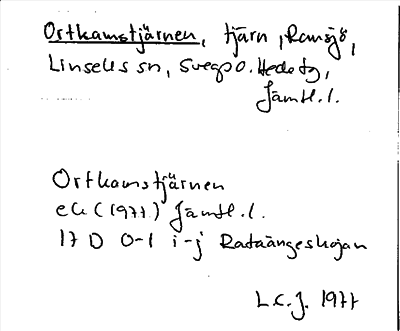 Ortkamstjärnen, tjärn, Ransjö,
Linsells sn, Svegs o. Hede tg,
Jämtl. l.
Ortkamstjärnen
ek (1977) Jämtl. l.
17 D 0-1 i-j Rataängeskojan
L.C.J. 1977